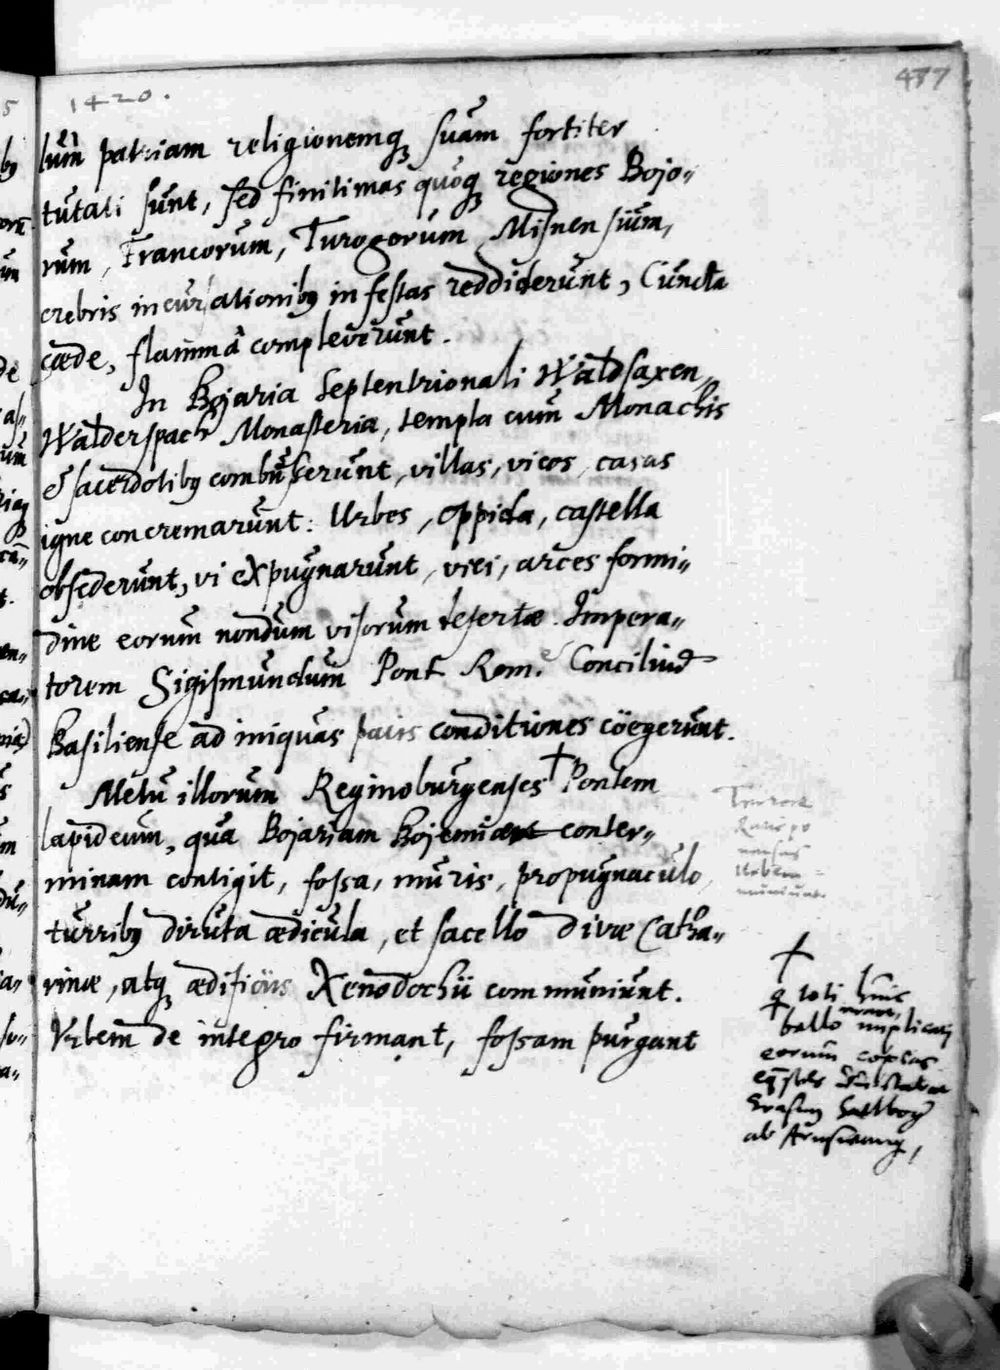 1420.
437
lum patriam religionemq suam fortiter
tutati sunt, sed finitimas quoq regiones Bojo„
rum, Francorum, Turogorum, Misnensium,
crebris incursationibq infestas reddiderunt, Cuncta
cæde, flamma compleverunt.
In Bojaria Septentrionali Waldsaxen,
Walderspach Monasteria, templa cum Monachis
& sacerdotibq combusserunt, villas, vicos, casas
igne concremarunt: Urbes, oppida, castella
obsederunt, vi expugnarunt, vici, arces formi„
dine eorum nondum visorum desertæ. Impera„
torem Sigismundum Pont Rom. Conciliu
Basiliense ad iniquas pacis conditiones cöegerunt.
Metu illorum Reginoburgenses † Pontem
lapideum, qua Bojariam Bojemia conter„
minam contigit, fossa, muris, propugnaculo,
turribq diruta ædicula, et sacello divæ Catha„
rinæ, atq ædificiis Xenodochii communiunt.
Urbem de integro firmant, fossam purgant
Timore
Ratispo
nenses
Urbem
muniunt.
†
q toti huic
bello implicati
eorum copias
Erasmq Sattlbog
ab